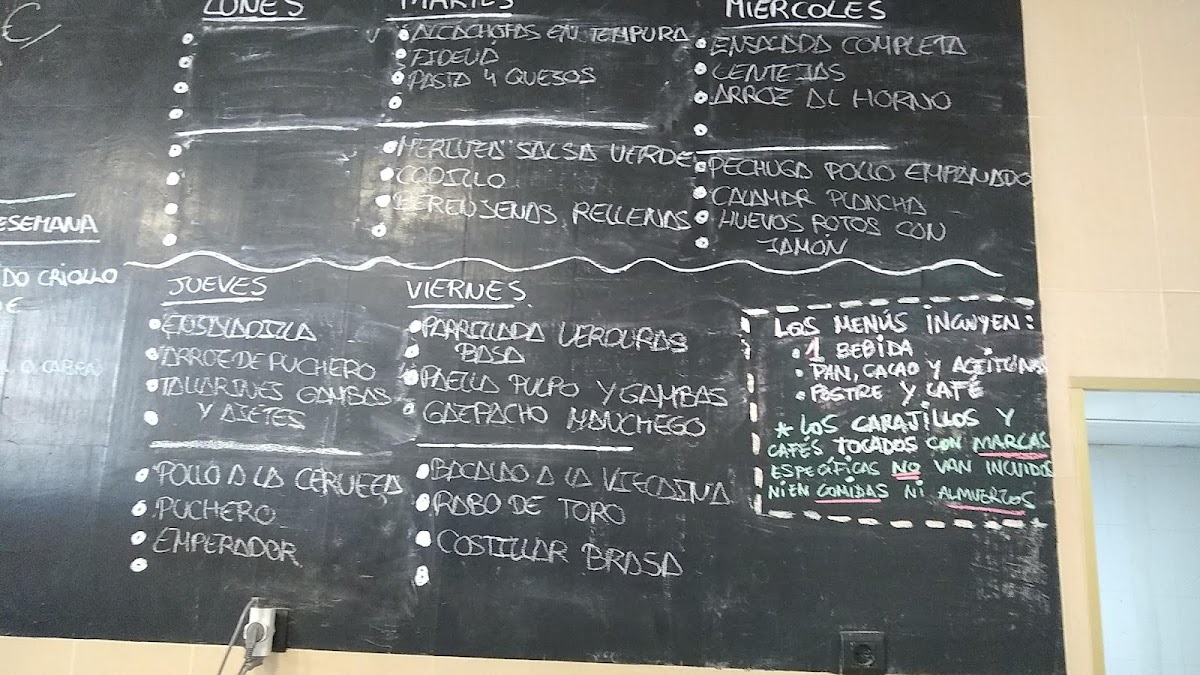 LUNES
MARTES
ALCACHOFAS EN TEMPURA
FIDEUÁ
PASTA 4 QUESOS
MERLUZA SALSA VERDE
CODILLO
BERENJENAS RELLENAS
MIÉRCOLES
ENSALADA COMPLETA
LENTEJAS
ARROZ AL HORNO
PECHUGA POLLO EMPANADO
CALAMAR PLANCHA
HUEVOS ROTOS CON
JAMÓN
ESEMANA
DO CRIOLLO
€
JUEVES
ENSALADILLA
ARROZ DE PUCHERO
TALLARINES GAMBAS
Y AJETES
POLLO A LA CERVEZA
PUCHERO
EMPERADOR
VIERNES
PARRILLADA VERDURAS
BRASA
PAELLA PULPO Y GAMBAS
GAZPACHO MANCHEGO
BACALAO A LA VIZCAINA
RABO DE TORO
COSTILLAR BRASA
LOS MENÚS INCLUYEN:
1 BEBIDA
PAN, CACAO Y ACEITUNAS
POSTRE Y CAFÉ
* LOS CARAJILLOS Y
CAFÉS TOCADOS CON MARCAS
ESPECÍFICAS NO VAN INCLUIDOS
NI EN COMIDAS NI ALMUERZOS